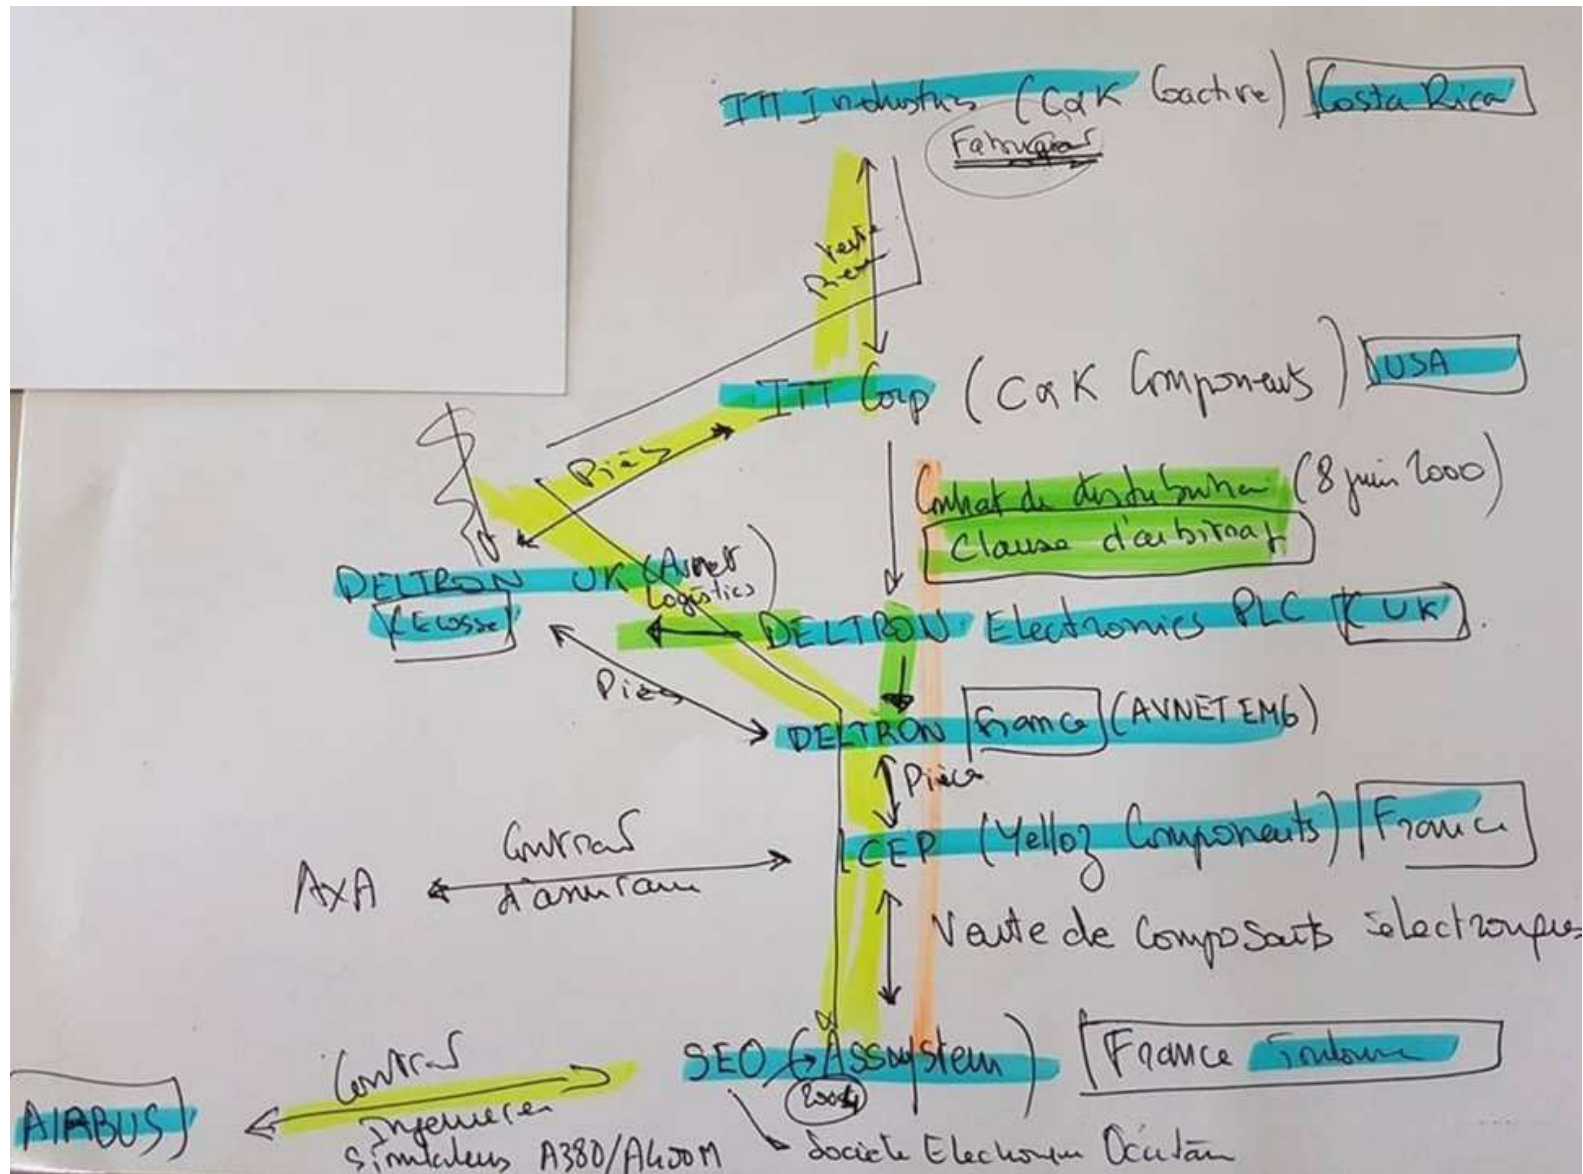 ITT Industries (C&K Coactive) Costa Rica
Fabrication
Vente
Pièces
ITT Corp (C&K Components) USA
Pièces
Contrat de distribution (8 juin 2000)
Clause d'arbitrage
DELTRON UK (Avnet
Logistics)
(Ecosse)
DELTRON Electronics PLC (UK)
Pièces
DELTRON France (AVNET EMG)
Pièces
CEP (Yelloz Components) France
AXA
Contrat
d'assurance
Vente de composants électroniques
SEO (→ Assystem) France Toulouse
2004
AIRBUS
Contrat
Ingénierie
Simulateurs A380/A400M
Société Electronique Occitane